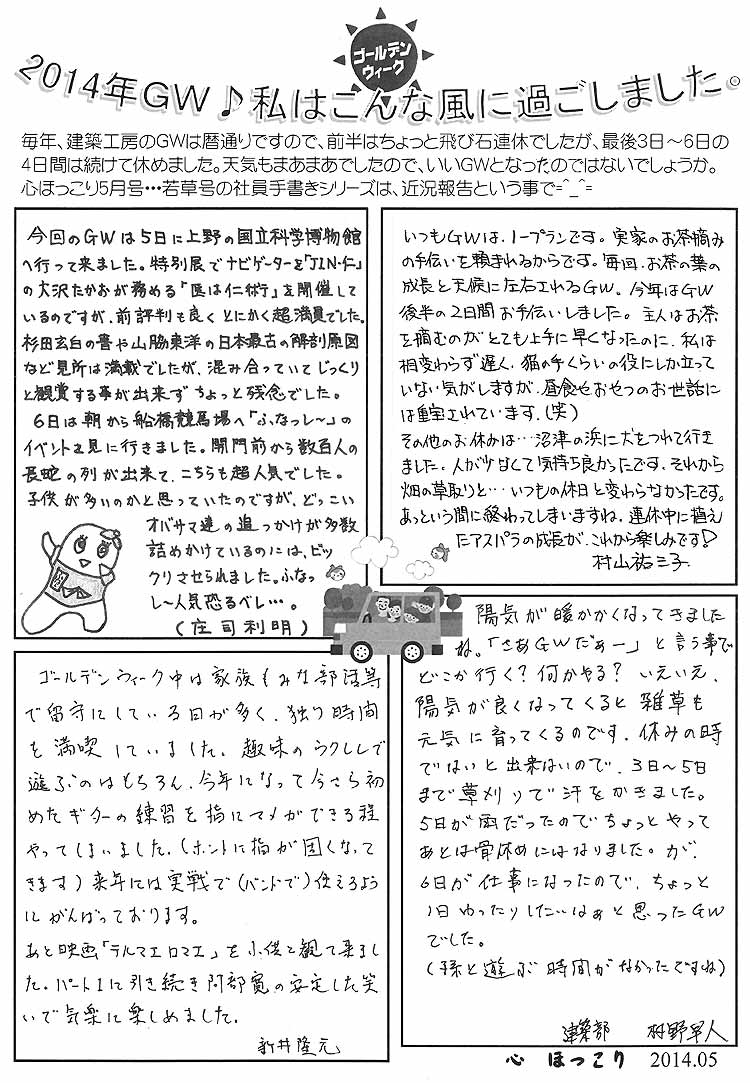 ゴールデン
ウィーク
2014年GW♪私はこんな風に過ごしました。
毎年、建築工房のGWは暦通りですので、前半はちょっと飛び石連休でしたが、最後3日～6日の
4日間は続けて休めました。天気もまあまあでしたので、いいGWとなったのではないでしょうか。
心ほっこり5月号…若草号の社員手書きシリーズは、近況報告という事で=^_^=
今回のGWは5日に上野の国立科学博物館
へ行って来ました。特別展でナビゲーターを「JIN・仁」
の大沢たかおが務める「医は仁術」を開催して
いるのですが、前評判も良くとにかく超満員でした。
杉田玄白の書や山脇東洋の日本最古の解剖原図
など見所は満載でしたが、混み合っていてじっくり
と観賞する事が出来ずちょっと残念でした。
6日は朝から船橋競馬場へ「ふなっしー」の
イベントを見に行きました。開門前から数百人の
長蛇の列が出来て、こちらも超人気でした。
子供が多いのかと思っていたのですが、どっこい
オバサマ達の追っかけが多数
詰めかけているのには、ビッ
クリさせられました。ふなっ
しー人気恐るべし…。
(庄司利明)
いつもGWは、ノープランです。実家のお茶摘み
の手伝いを頼まれるからです。毎回、お茶の葉の
成長と天候に左右されるGW。今年はGW
後半の2日間お手伝いしました。主人はお茶
を摘むのがとても上手に早くなったのに、私は
相変わらず遅く、猫の手くらいの役にしか立って
いない気がしますが、昼食やおやつのお世話に
は重宝されています。(笑)
その他のお休みは…沼津の浜に犬をつれて行き
ました。人が少なくて気持ち良かったです。それから
畑の草取りと…いつもの休日と変わらなかったです。
あっという間に終わってしまいますね。連休中に植え
たアスパラの成長が、これから楽しみです♡
村山祐三子
ゴールデンウィーク中は家族もみな部活等
で留守にしている日が多く、独り時間
を満喫していました。趣味のウクレレで
遊ぶのはもちろん、今年になって今さら初
めたギターの練習を指にマメができる程
やってしまいました。(ホントに指が固くなって
きます)来年には実戦で(バンドで)使えるよう
にがんばっております。
あと映画「テルマエロマエ」を子供と観て来まし
た。パートIに引き続き阿部寛の安定した笑
いで気楽に楽しめました。
新井隆元
陽気が暖かくなってきました
ね。「さあGWだぁー」と言う事で
どこか行く？何かやる？いえいえ、
陽気が良くなってくると雑草も
元気に育ってくるのです。休みの時
でないと出来ないので、3日～5日
まで草刈りで汗をかきました。
5日が雨だったのでちょっとやって
あとは骨休めにはなりました。が、
6日が仕事になったので、ちょっと
1日ゆったりしたいなぁと思ったGW
でした。
(孫と遊ぶ時間がなかったですね)
建築部 村野早人
心 ほっこり 2014.05